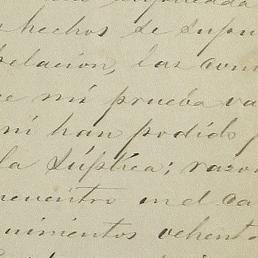 hechos de supu
relación, las com
mi prueba va
ni han podido
la súplica; razo
ncuentro en el ca
uimientos vehent